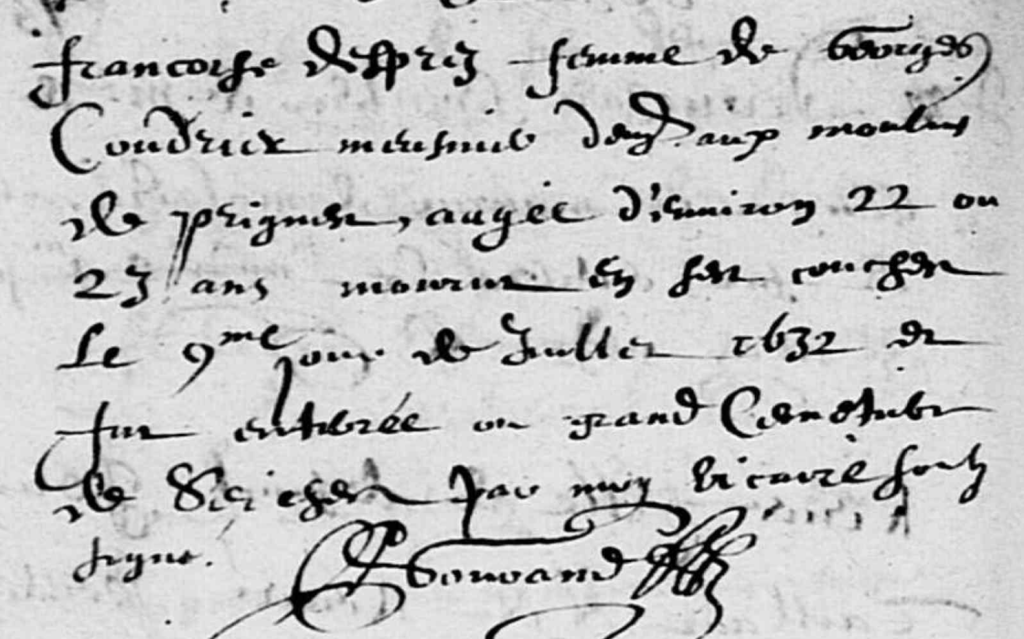 francoise Desprez femme de Georges
Coudrier meusnier dem.t aux moulins
de prignes, augée d'enuiron 22 ou
23 ans mourut en ses couches
Le 9me jour de Juillet 1632 et
fut enterrée ou grand Cemetiere
de Seiches par moy vicaire soubz
signé.